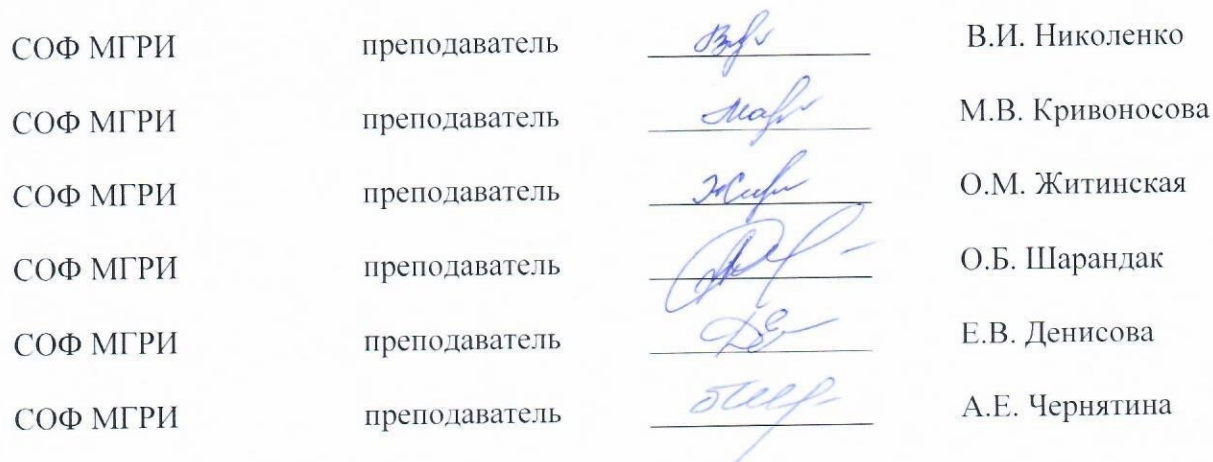 СОФ МГРИ преподаватель В.И. Николенко
СОФ МГРИ преподаватель М.В. Кривоносова
СОФ МГРИ преподаватель О.М. Житинская
СОФ МГРИ преподаватель О.Б. Шарандак
СОФ МГРИ преподаватель Е.В. Денисова
СОФ МГРИ преподаватель А.Е. Чернятина